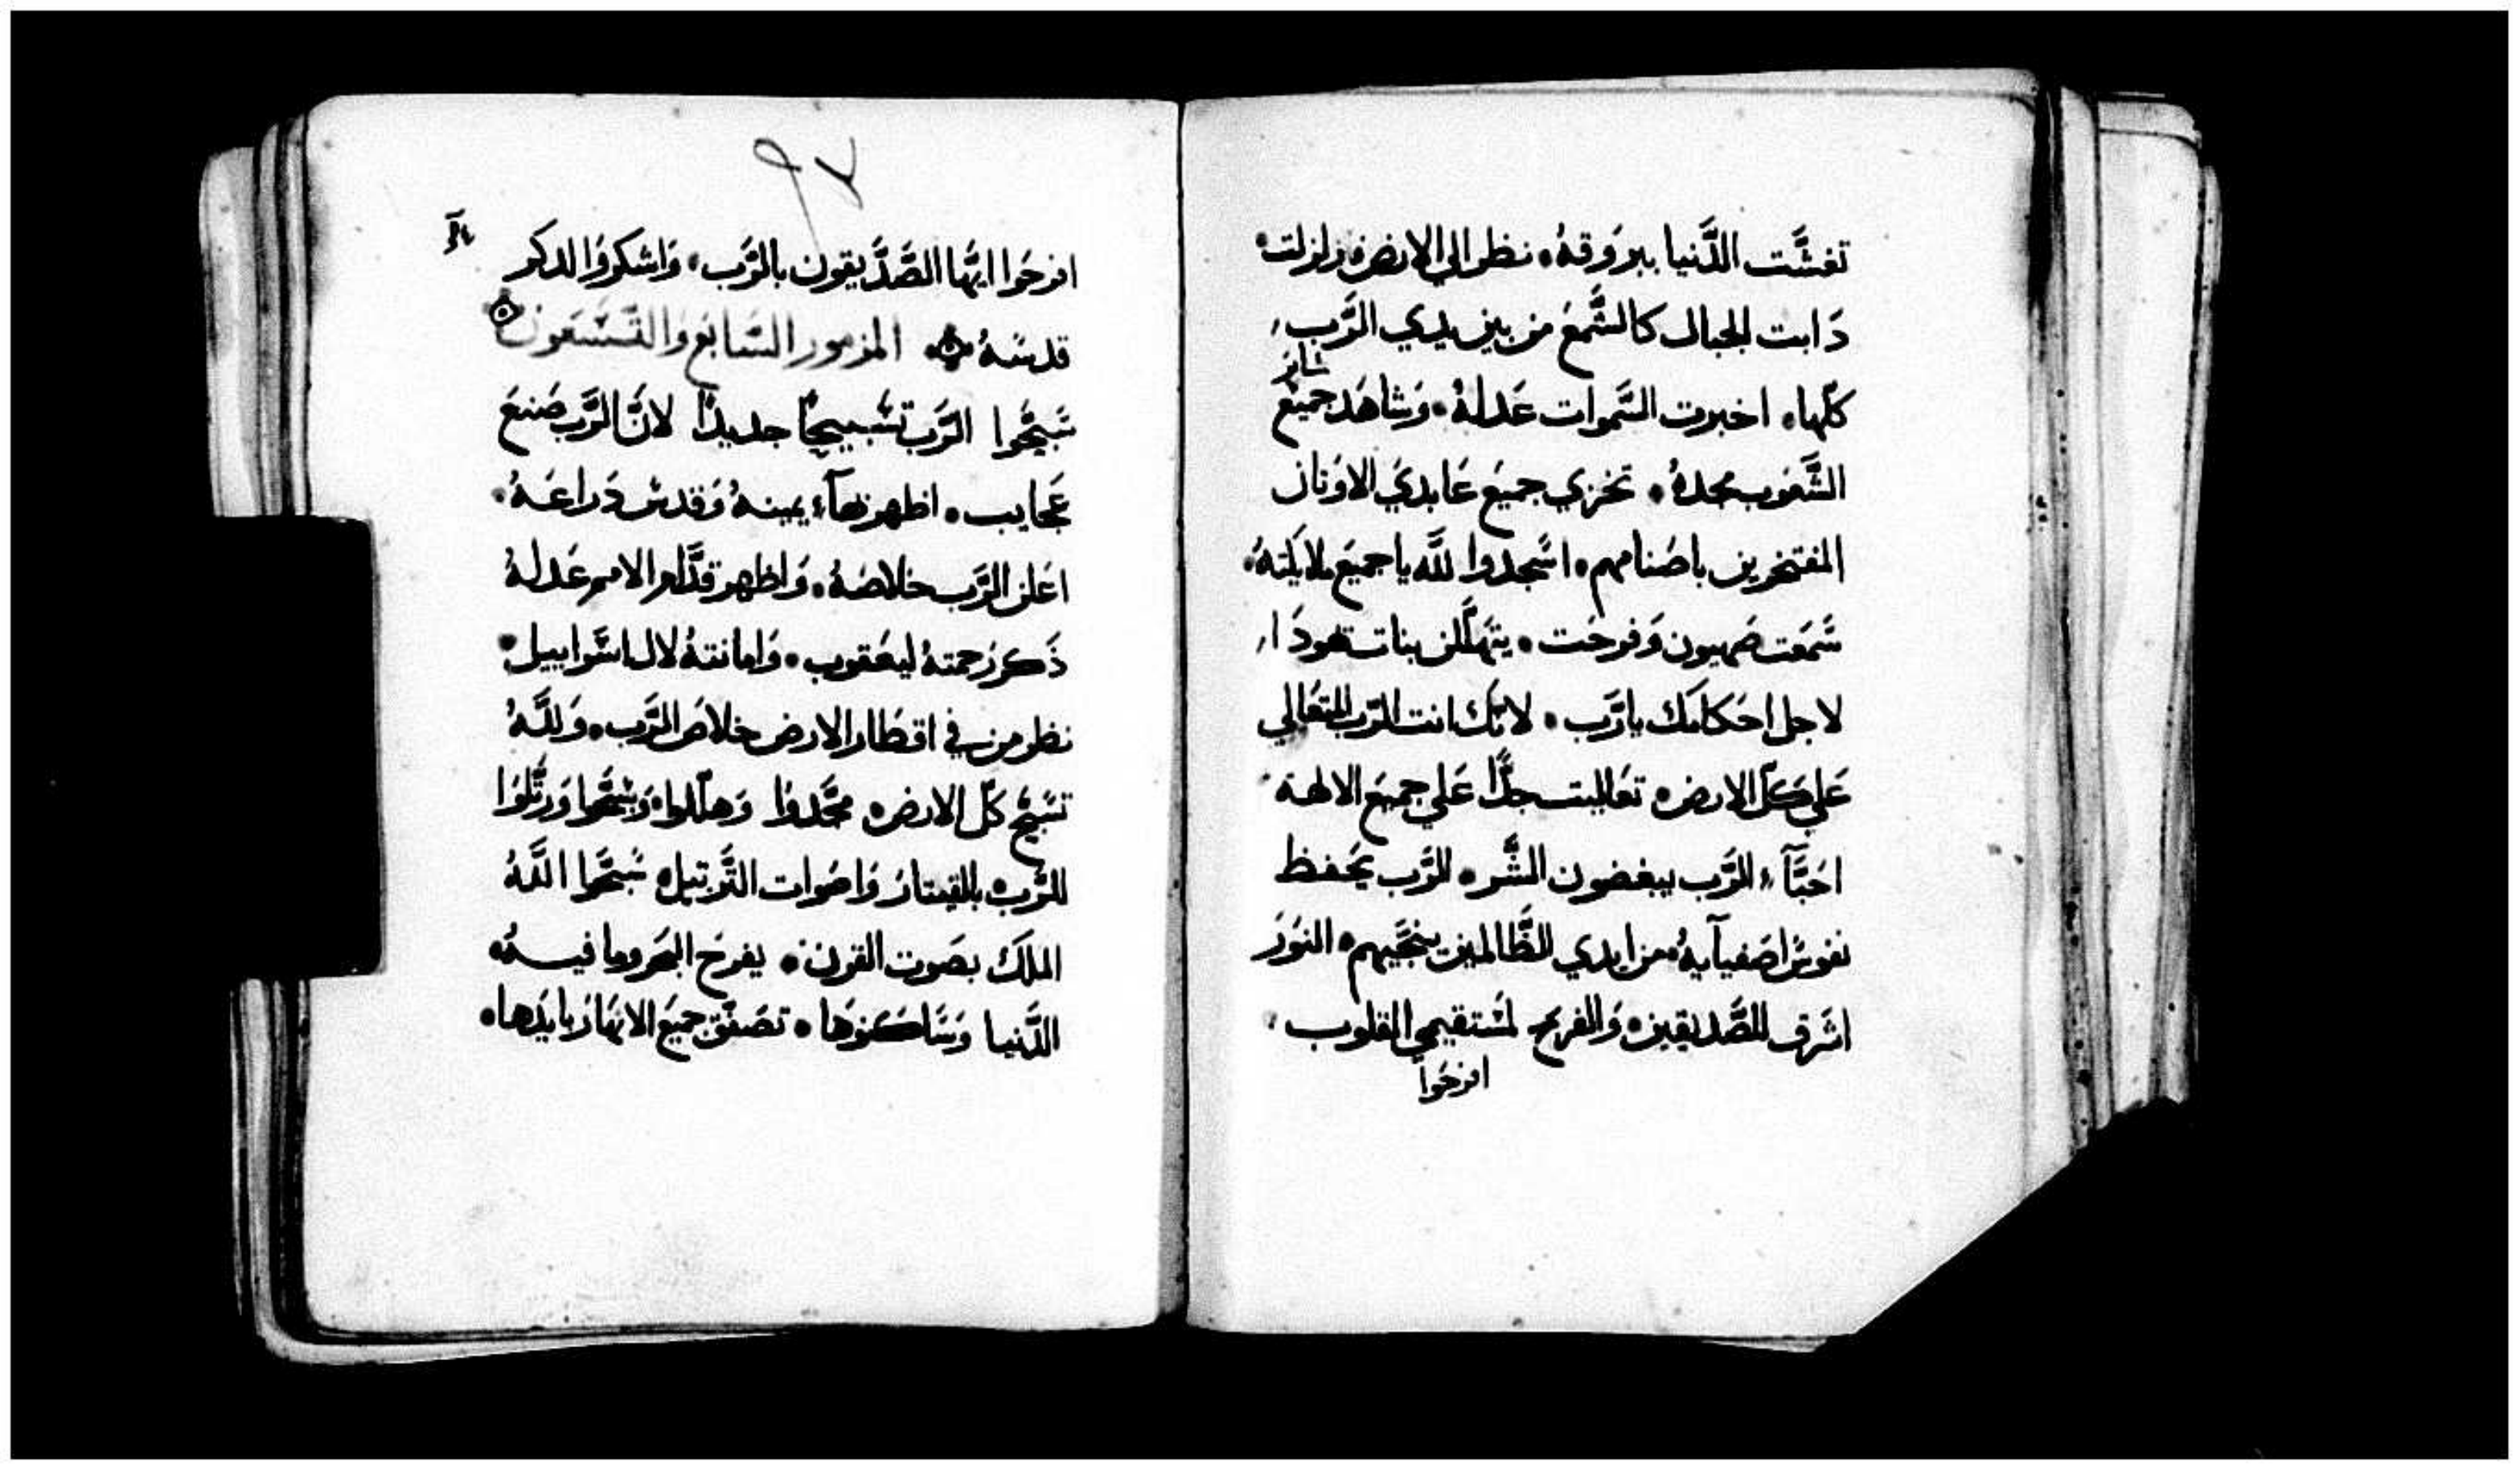 تغشَّت الدَّنيا ببروقهُ • نظر الي الارض وزلزلت •
دَابت الجبال كالشَّمعَ من بين يدي الرَّب
كلّها • اخبرت السَّموات عَدلهُ • وَشاهَد جميعَ
سَاير
الشَّعَوب مجدهُ • تخزي جميَع عَابديَ الاوَتان
المفتخرين باصَنامهم • اسَجدوا للَّه يا جميَع ملايكتهُ •
سَمَعَت صَهيون وَفرحَت • يتهَلَّلن بنات يَهودَا
لاجل احَكامَك يا رَّب • لانَّك انت الرَّب المتعَالي
عَلي كَلّ الارض • تعَاليت جدًّا عَلي جميَع الالهة
احَبَّآء الرَّب يبغضون الشَّر • الرَّب يحَفظ
نفوسَ اصَفيآيهُ • من ايدي الظَّالمين ينجَّيهم • النوَر
اشَرق للصَّديقين • وَالفرحَ لمسَتقيمي القلوب
افرحَوا
٩٧
افرحَوا ايّها الصَّدَّيقون بالرَّب • وَاشكروَا لدكر
قدسَهُ • المزمور السَّابَع وَالتَّسَعَون
سَبَّحَوا الرَّب تسَبيحًا جديدًا لانَّ الرَّب صَنعَ
عَجايب • اظهرتهآء يمينهُ وَقدسَ دَراعَهُ •
اعَلن الرَّب خلاصَهُ • وَاظهر قدَّام الامم عَدلهُ
ذَكر رَحمتهُ ليعَقوب • وَامانتهُ لال اسَراييل •
نظر من في اقطَار الارض خلاصَ الرَّب • وَللَّهُ
تسَبَّح كلّ الارض • مجَّدوُا وَهلّلوا • وَسَبَّحَوا وَرتَّلوَا
للرَّب • بالقيتارَ وَاصَوات التَّرتيل • سَبَّحَوا اللَّهُ
الملَك بصَوت القرن • يفرحَ البحَر وما فيــهُ •
الدَّنيا وَسَاكنوَها • تصَفَّق جميَع الانهارَ بايدَها •